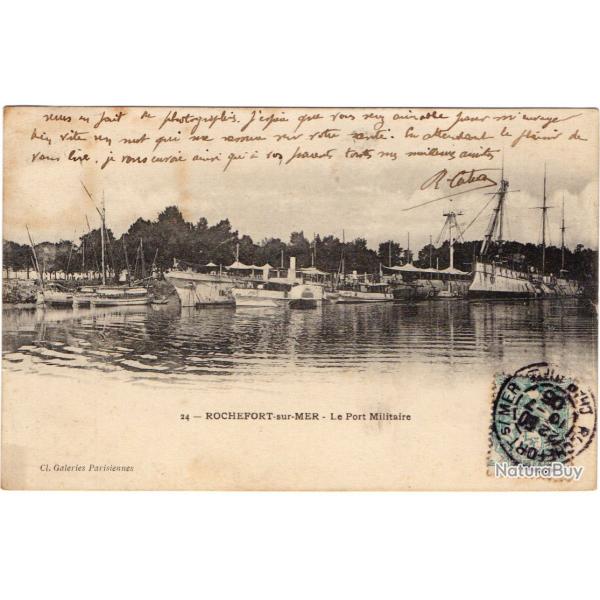 en fait de photographie. J'espère que vous serez aimable pour m'envoyer
bien vite un mot qui me rassure sur votre santé. En attendant le plaisir de
vous lire, je vous envoie ainsi qu'à vos parents toutes mes meilleures amitiés
24 — ROCHEFORT-sur-MER - Le Port Militaire
Cl. Galeries Parisiennes
ROCHEFORT S. MER
CH-INF
NaturaBuy